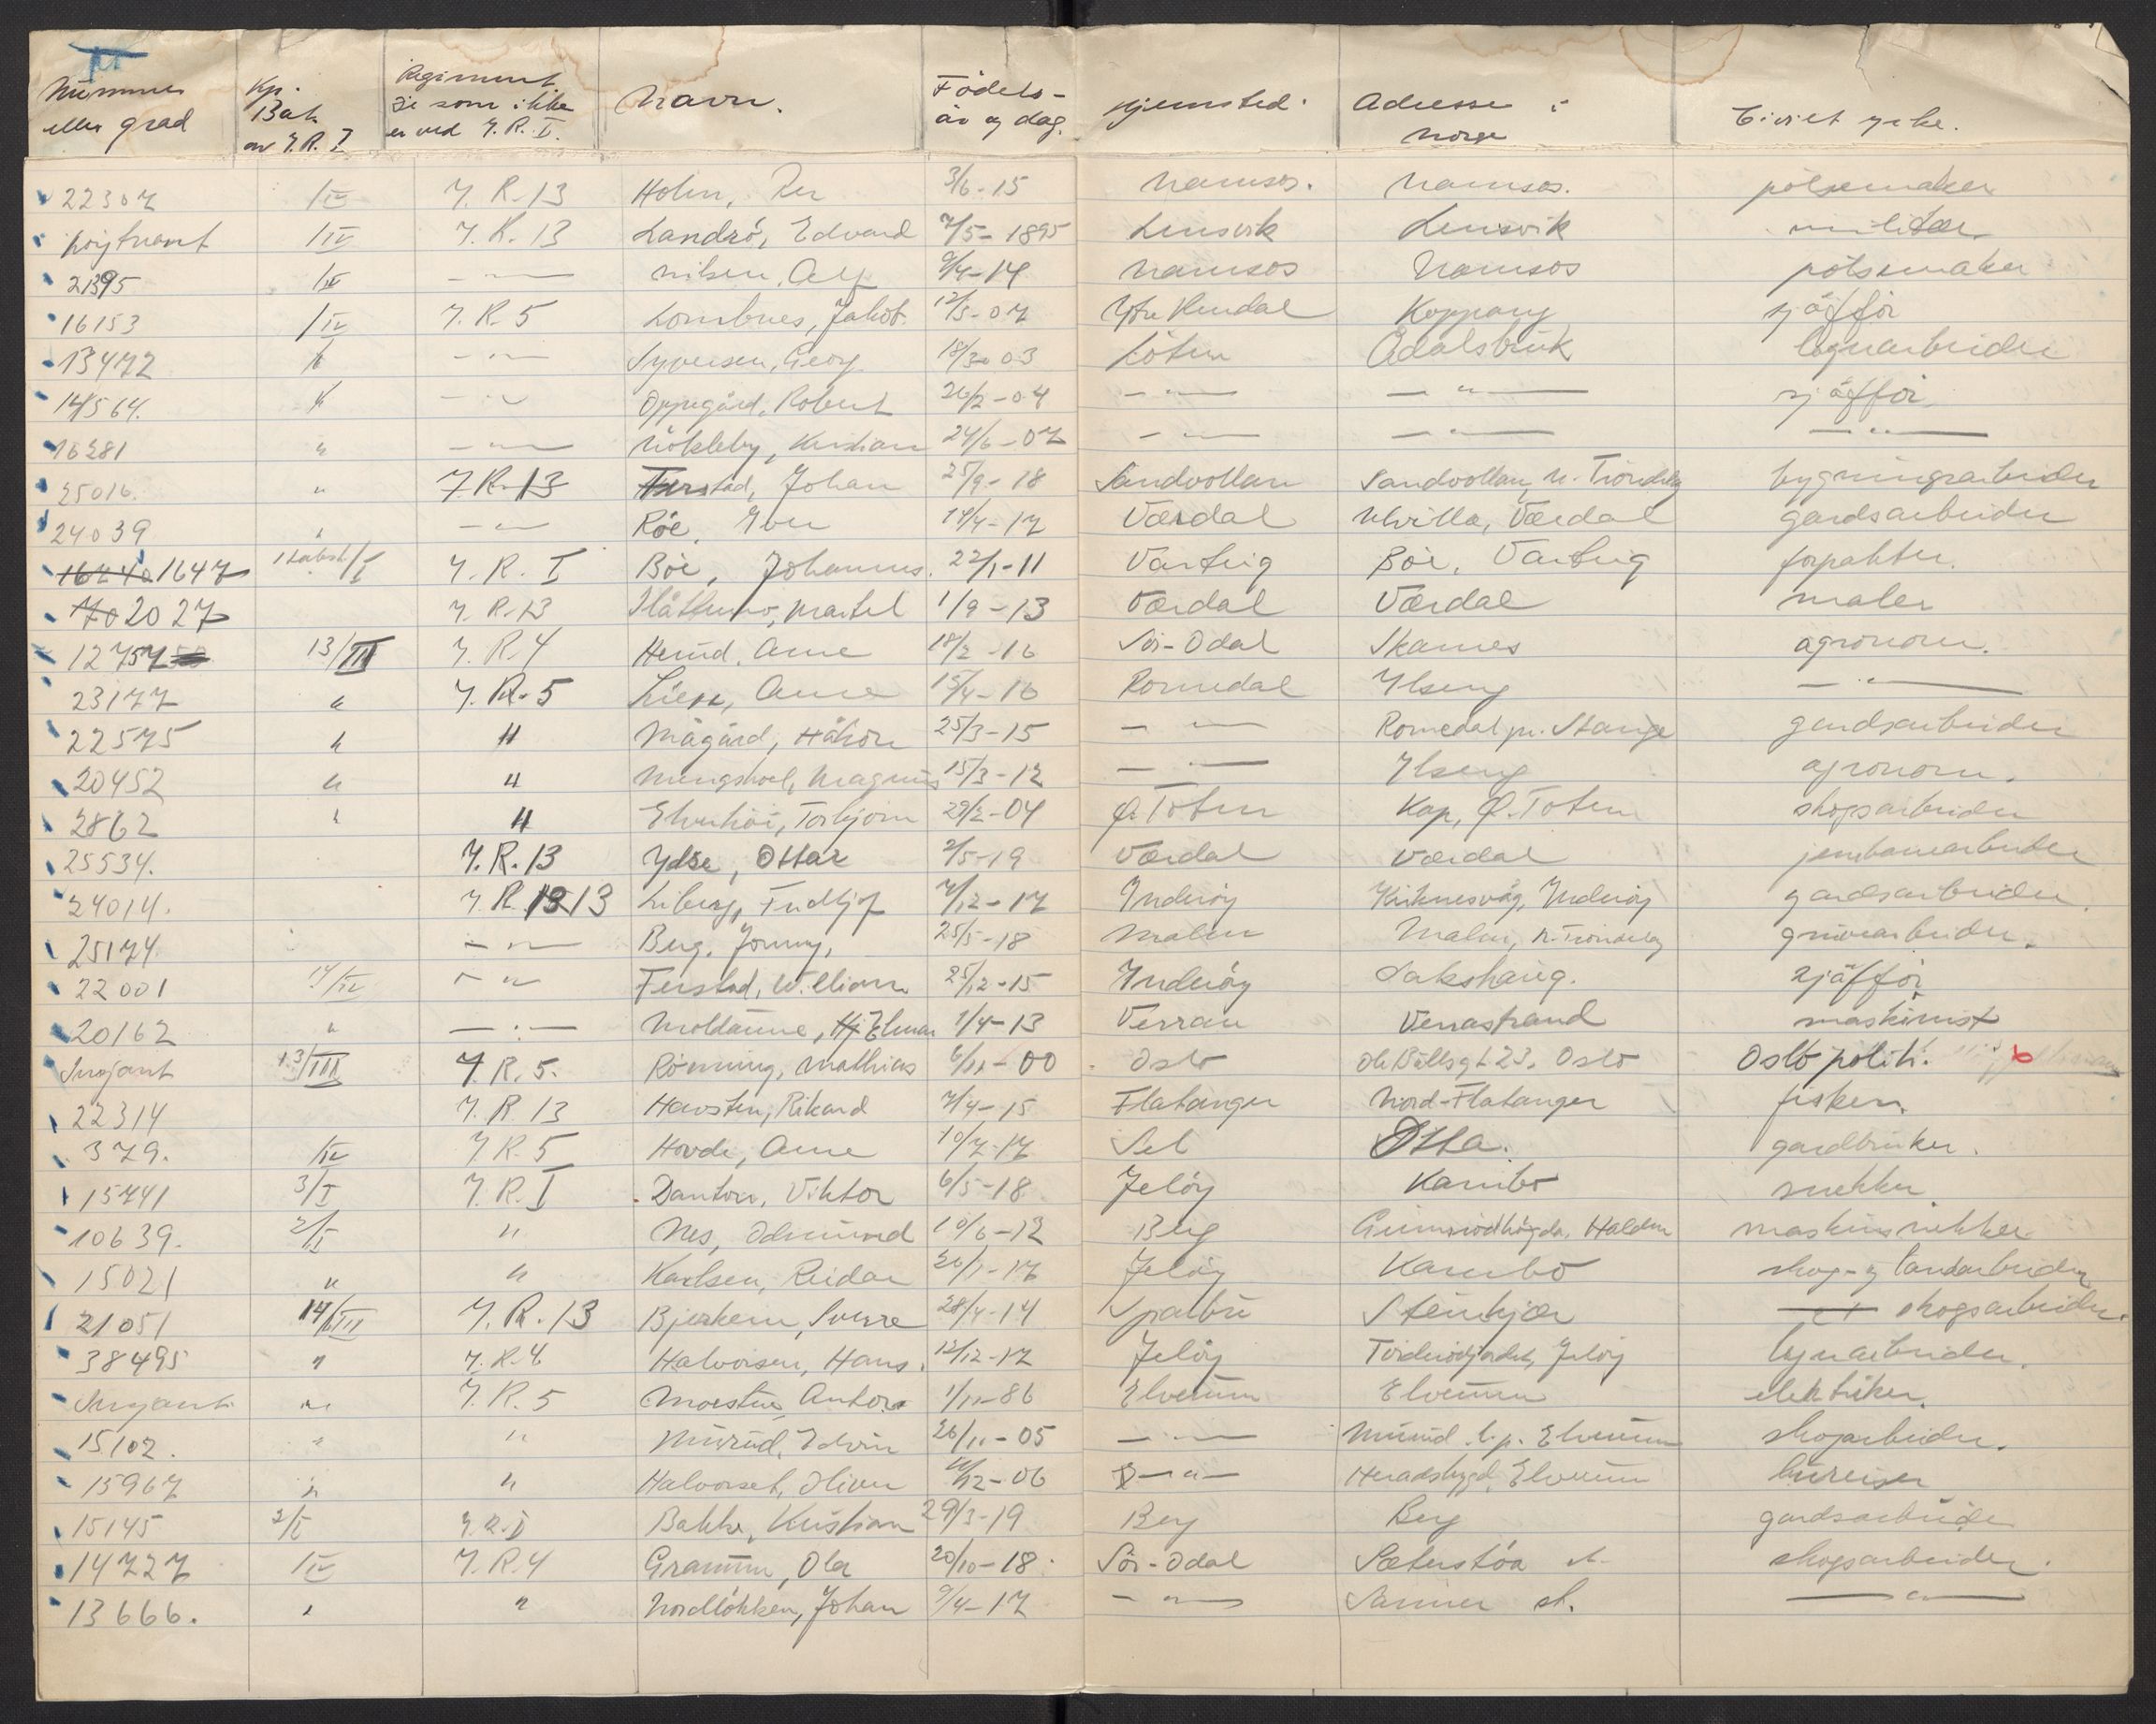 Nummer eller grad | Kp. Bat. av I.R. I | Regiment de som ikke er ved I.R. I. | Navn. | Födels- år og dag. | Hjemsted. | Adresse i Norge | Civilt yrke.
22307 | /IV | I.R.13 | Holm, Per | 3/6-15 | Namsos. | Namsos. | pölsemaker
| /IV | I.R.13 | Landrö, Edvard | 7/5-1895 | Lensvik | Lensvik | militær.
2395 | /IV | — " — | Nilsen, Alf | 9/4-14 | Namsos | Namsos | pölsemaker
16153 | /IV | I.R.5 | Jakob. | 12/5-07 | Ytre Rendal | Koppang | sjåfför
13472 | " | — " — | Syversen, Georg. | 18/3-03 | Löten | Ådalsbruk |
14564. | " | — " — | Oppegård, Robert | 26/2-04 | — " — | — " — | sjåffør.
16281 | " | — " — | Nökleby, Kristian | 24/6-07 | — " — | — " — | — " —
25016. | " | I.R.13 | Johan | 25/9-18 | Sandvollan | Sandvollan, N. Tröndelag | bygningsarbeider
24039 | " | — " — | Röe, Iver | 14/4-17 | Værdal | Ulvilla, Værdal | gardsarbeider
1647 | | I.R. I | Böe, Johannes. | 22/1-11 | Varteig | Böe, Varteig | forpakter.
2027 | | I.R.13 | | 1/9-13 | Værdal | Værdal | maler
12757 | 13/III | I.R.4 | Arne | 18/2-16 | Sör-Odal | Skarnes | agronom.
23177 | " | I.R.5 | Lien, Arne | 15/4-16 | Romedal | Ilseng | — " —
22575 | " | " | Mågård, Håkon | 25/3-15 | — " — | Romedal pr. Stange | gardsarbeider
20452 | " | " | Mengshoel, Magnus | 15/3-12 | — " — | Ilseng | agronom.
2862 | " | " | Torbjörn | 29/2-04 | Ø. Toten | Kap, Ø. Toten | skogsarbeider
25534. | | I.R.13 | Ydse, Ottar | 2/5-19 | Værdal | Værdal | jernbanearbeider
24014. | | I.R. 13 | Liberg, Fridtjof | 7/12-17 | Inderöy | Kirknesvåg, Inderöy | gardsarbeider.
25174. | | — " — | Berg, Jonny, | 25/5-18 | Malm | Malm, N. Tröndelag | gruvearbeider.
22001 | 14/IV | — " — | Ferstad, William | 25/12-15 | Inderöy | Sakshaug. | sjåffør
20162 | " | — " — | Moldaune, Hj. Elmar | 1/4-13 | Verran | Verrastrand | maskinist
Sersjant | 13/III | I.R.5. | Rönning, Mathias | 6/11-00 | Oslo | Ole Bullsgt 23. Oslo | Oslo politi.
22314 | | I.R.13 | Havsten, Rikard | 7/4-15 | Flatanger | Nord-Flatanger | fisker.
379. | /IV | I.R.5 | Hovde, Arne | 10/7-17 | Sel | Otta. | gardbruker.
15741 | 3/I | I.R. I | Danton, Viktor | 6/5-18 | Jelöy | Kambo | snekker.
10639. | 2/I | " | Nes, Edmund | 10/6-12 | Berg | Halden | maskinsnekker
15021 | " | " | Karlsen, Reidar | 20/1-17 | Jelöy | Kambo | skog- og landarbeider
21051 | 14/III | I.R.13 | Bjerkem, Sverre | 28/4-14 | Sparbu | Steinkjer | skogsarbeider.
38495 | " | I.R.4 | Halvorsen, Hans. | 12/12-17 | Jelöy | Jelöy |
Sersjant. | " | I.R.5 | Moestue, Anton | 1/11-86 | Elverum | Elverum | elektriker.
15102. | " | " | Edvin | 26/11-05 | — " — | Elverum | skogarbeider.
15967 | " | " | Halvorset, Oliver | 12-06 | — " — | Heradsbygd, Elverum | bureiser
15145 | 2/I | I.R.I | Bakke, Kristian | 29/3-19 | Berg | Berg | gardsarbeider
14727 | /IV | I.R.4 | Gramm, Ola | 20/10-18. | Sör-Odal | Sæterstöa st. | skogsarbeider.
13666. | " | " | Nordlökken, Johan | 9/4-17 | — " — | Sander st. | — " —